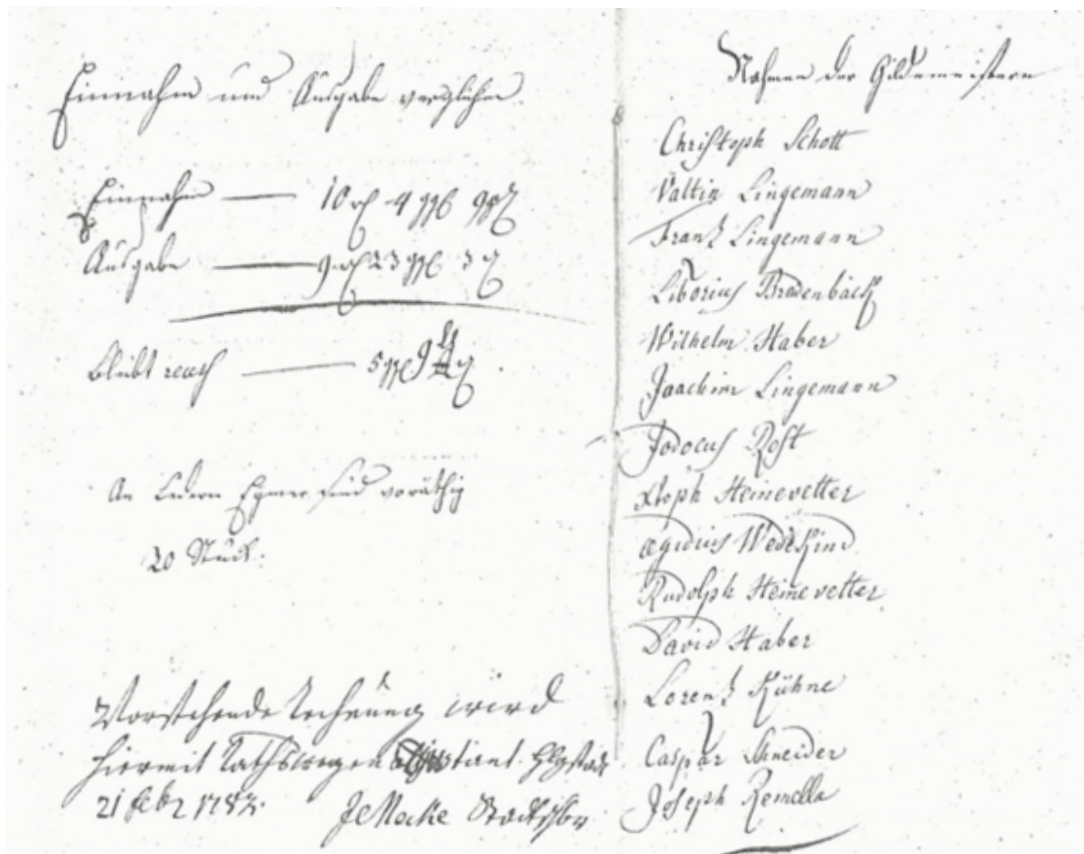 Einnahm und Ausgabe verglichen
Einnahm — 10 4 9
Ausgabe — 9 23 3
bleibt 5 9
An Ledern Eymer sind voräthig
20 Stück.
Vorstehende rechnung wird
hiermit rathswegen
21 Feb 178 Macke Stadtschbr
Nahmen der Gildemeistern
Christoph Schott
Valtin Lingemann
Frantz Lingemann
Liborius Bredenback
Wilhelm Haber
Joachim Lingemann
Jodocus Rost
Xtoph Heinevetter
Ægidius Wedekind
Rudolph Heinevetter
David Haber
Lorentz Kühne
Caspar Schneider
Joseph Remella